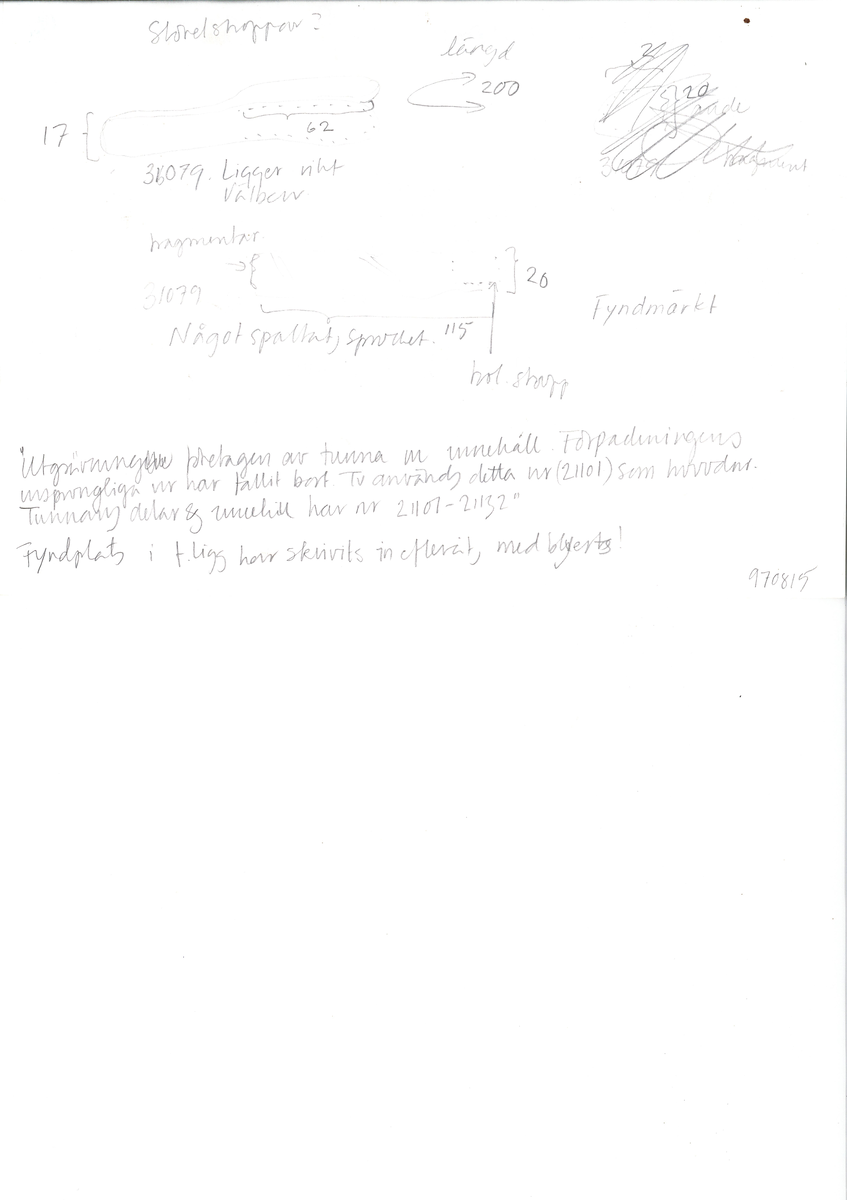 längd
200
17
62
20
31079. Ligger vikt
fragmentar.
31079
20
Något spaltat, sprucket. 115
Fyndmärkt
"Utgrävningen företagen av tunna m innehåll. Förpackningens
ursprungliga nr har fallit bort. Tv används detta nr (21101) som huvudnr.
Tunnans delar & innehåll har nr 21101-21132"
Fyndplats i f.ligg har skrivits in efteråt, med blyerts!
970815